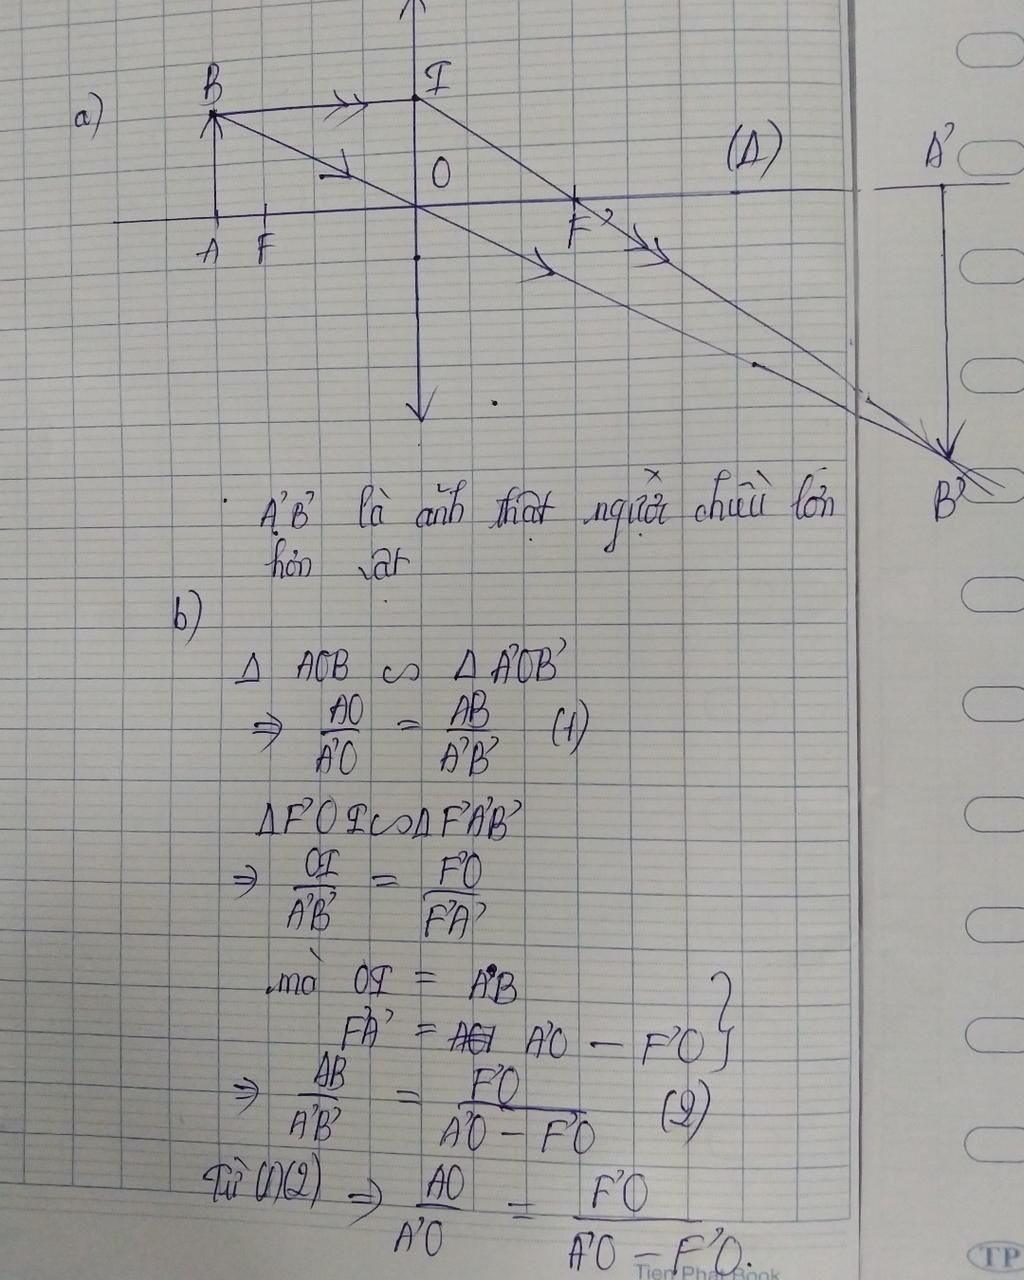 a)
B
I
O
(Δ)
A'
A
F
F'
B'
A'B' là ảnh thật ngược chiều lớn
hơn vật
b)
Δ AOB ∽ Δ A'OB'
⇒ AO/A'O = AB/A'B' (1)
ΔF'OI ∽ ΔF'A'B'
⇒ OI/A'B' = F'O/F'A'
mà OI = AB
F'A' = A'O - F'O }
⇒ AB/A'B' = F'O/(A'O - F'O) (2)
Từ (1)(2) ⇒ AO/A'O = F'O/(A'O - F'O).
TP
Tien Phat Book